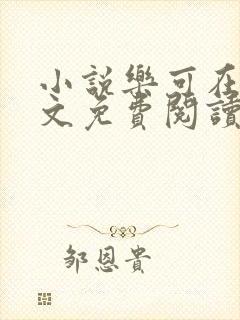 小說樂可在
文免費閱讀
鄒恩貴